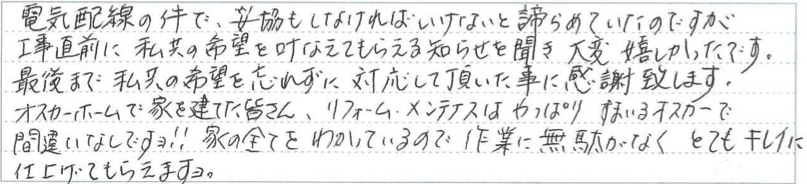 電気配線の件で、妥協もしなければいけないと諦らめていたのですが
工事直前に私共の希望を叶なえてもらえる知らせを聞き大変嬉しかったです。
最後まで私共の希望を忘れずに対応して頂いた事に感謝致します。
オスカーホームで家を建てた皆さん、リフォーム・メンテナスはやっぱりすまいるオスカーで
間違いなしですヨ!! 家の全てをわかっているので作業に無駄がなくとてもキレイに
仕上げてもらえますヨ。